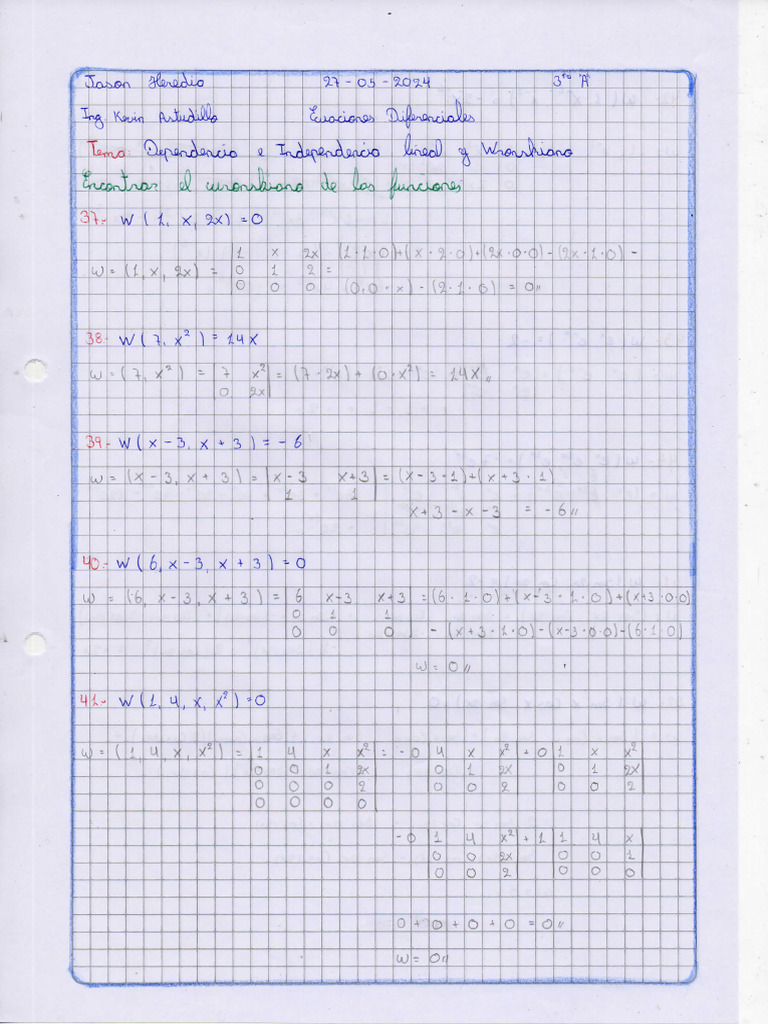 Jason Heredia 27-05-2024 3ro "A"
Ing Kevin Astudillo Ecuaciones Diferenciales
Tema: Dependencia e Independencia lineal y Wronskiano
Encontrar el wronskiano de las funciones:
37.- W(1, x, 2x) = 0
w = (1, x, 2x) = |1 x 2x| (1·1·0)+(x·2·0)+(2x·0·0)-(2x·1·0) -
|0 1 2| =
|0 0 0| (0·0·x)-(2·1·0) = 0//
38.- W(7, x²) = 14x
w = (7, x²) = |7 x²| = (7·2x)+(0·x²) = 14x//
|0 2x|
39.- W(x-3, x+3) = -6
w = (x-3, x+3) = |x-3 x+3| = (x-3·1)+(x+3·1)
|1 1|
x+3-x-3 = -6//
40.- W(6, x-3, x+3) = 0
w = (6, x-3, x+3) = |6 x-3 x+3| = (6·1·0)+(x-3·1·0)+(x+3·0·0)
|0 1 1|
|0 0 0| - (x+3·1·0)-(x-3·0·0)-(6·1·0)
w = 0//
41.- W(1, 4, x, x²) = 0
w = (1, 4, x, x²) = |1 4 x x²| = -0 |4 x x²| + 0 |1 x x²|
|0 0 1 2x| |0 1 2x| |0 1 2x|
|0 0 0 2| |0 0 2| |0 0 2|
|0 0 0 0|
-0 |1 4 x²| + 1 |1 4 x|
|0 0 2x| |0 0 1|
|0 0 2| |0 0 0|
0 + 0 + 0 + 0 = 0//
w = 0//